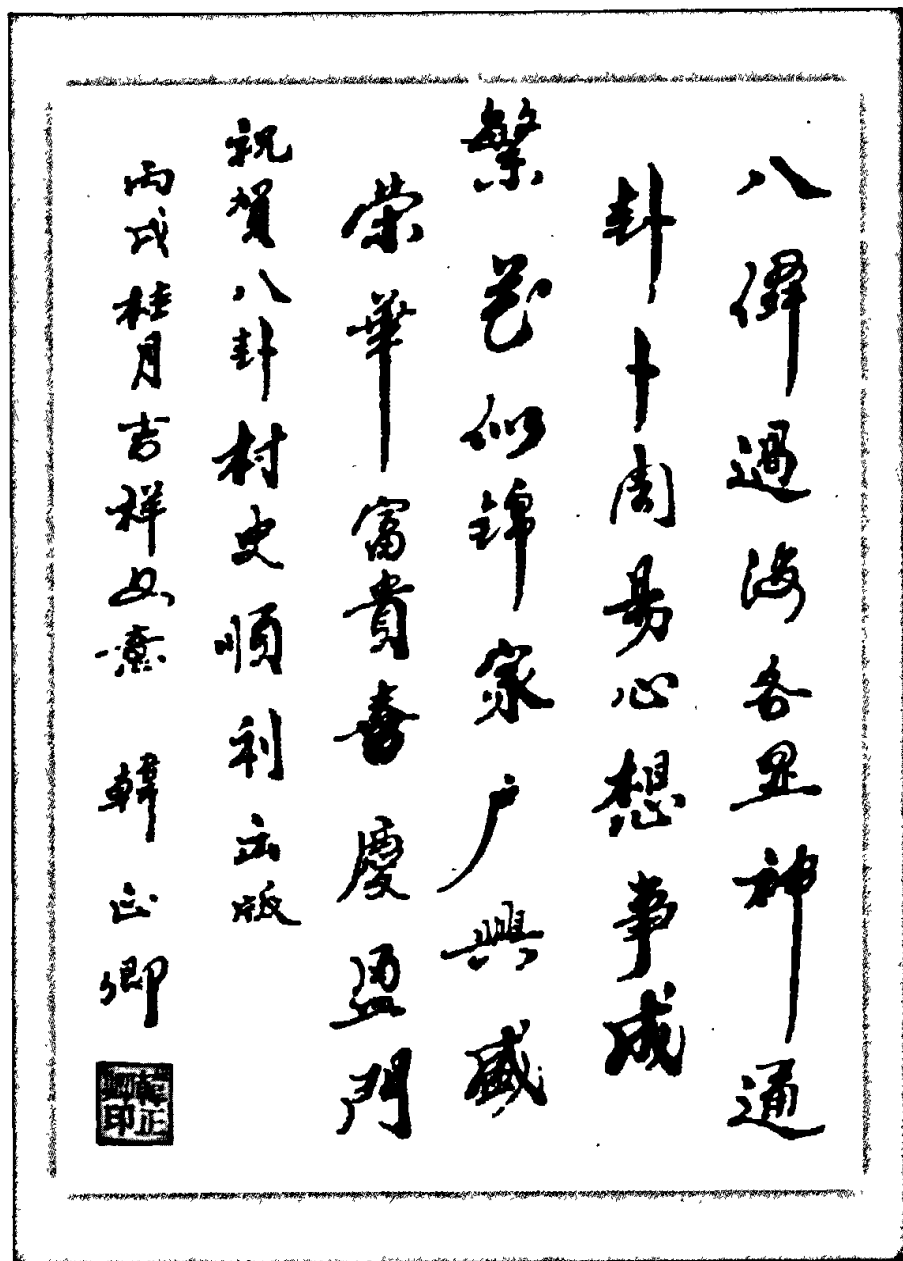 八僊過海各显神通
卦卜周易心想事成
繁花似錦家户興盛
榮華富貴喜慶盈門
祝賀八卦村史順利出版
丙戌桂月吉祥如意 韓正卿
韓正卿印